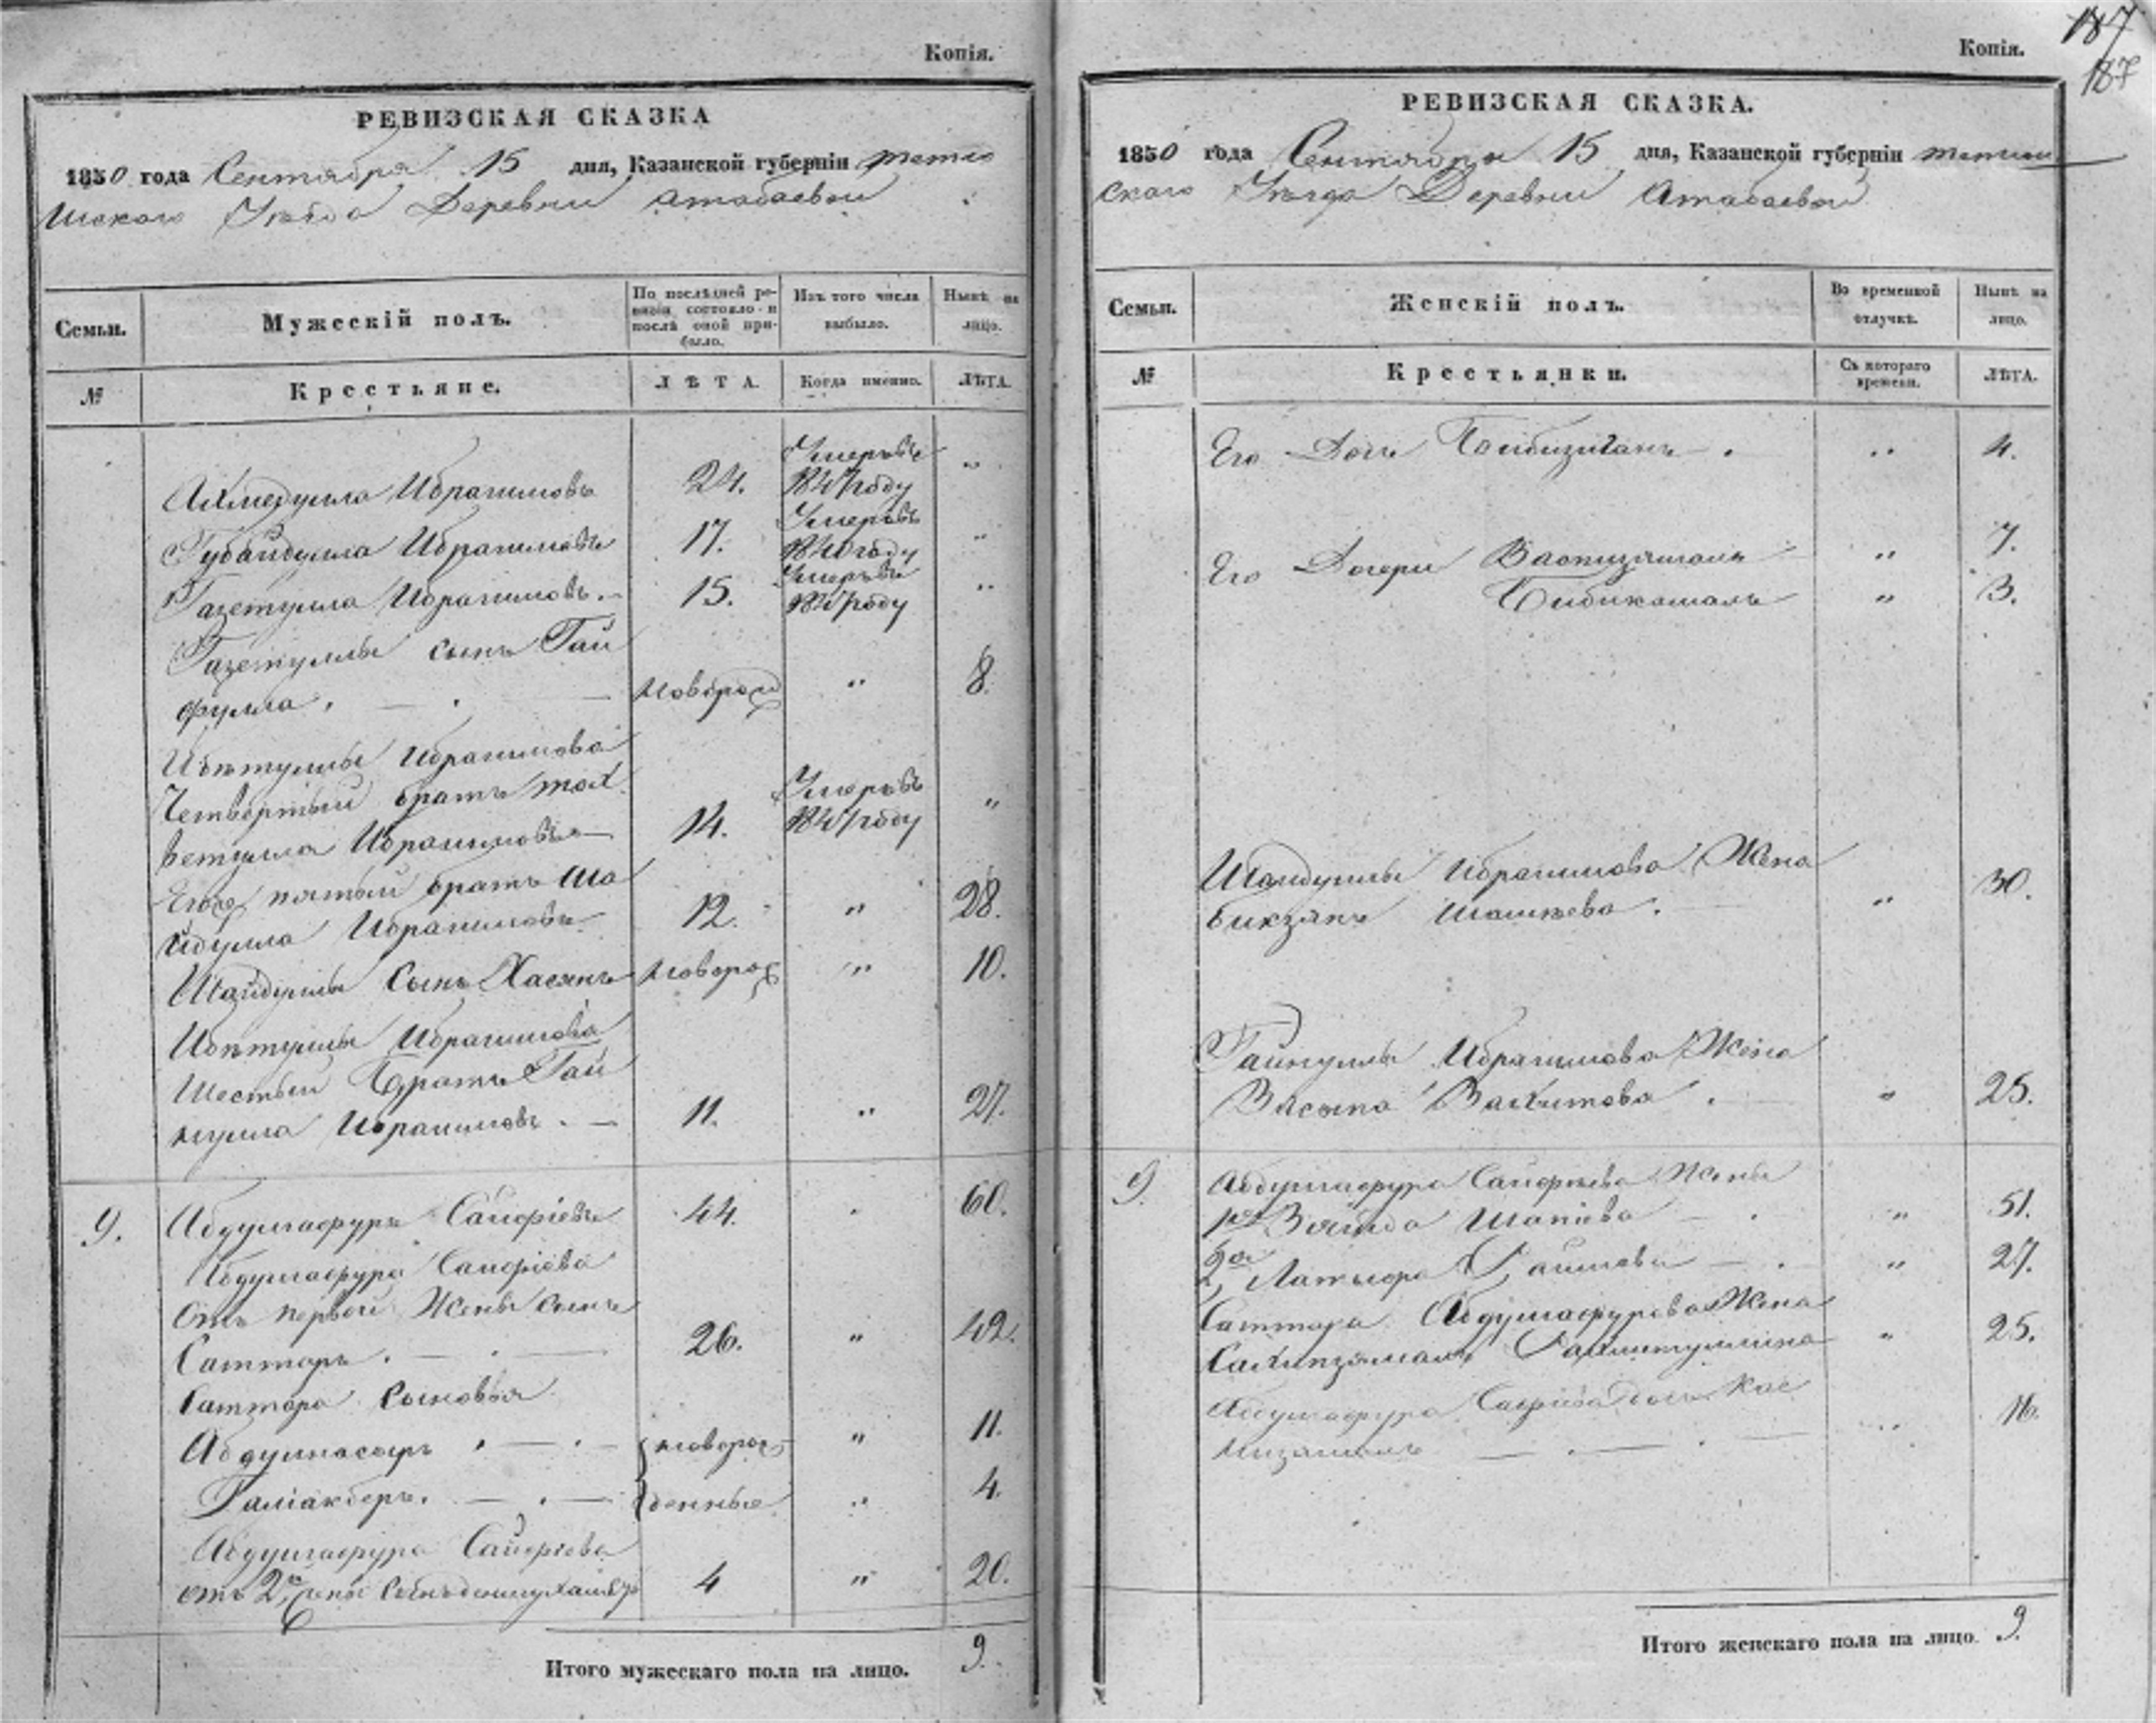 Копія.
РЕВИЗСКАЯ СКАЗКА
1850 года Сентября 15 дня, Казанской губерніи тетю
шскаго Уѣзда Деревни Атабаевой
Семьи.
Мужескій полъ.
По послѣдней ре-
визіи состояло и
послѣ оной при-
было.
Изъ того числа
выбыло.
Нынѣ на
лицо.
№
Крестьяне.
ЛѢТА.
Когда именно.
ЛѢТА.
Ахмедулла Ибрагимовъ 24. Умеръ въ "
году
Губайдулла Ибрагимовъ 17. Умеръ въ "
1840 году
Газетулла Ибрагимовъ. 15. Умеръ въ "
году
Газетуллы сынъ Гай
фулла. новорож " 8.
Ибетуллы Ибрагимова
Четвертый братъ мох Умеръ въ
ветулла Ибрагимовъ 14. году "
Его пятый братъ Ша
йдулла Ибрагимовъ 12. " 28.
Шайдуллы Сынъ Хасянъ новорож " 10.
Ибетуллы Ибрагимова
Шестый Братъ Гай
нулла Ибрагимовъ. 11. " 27.
9. Абдулгафуръ Сайфіевъ 44. 60.
Абдулгафура Сайфіева
Отъ первой Жены сынъ
Саттаръ. 26. " 42.
Саттара Сыновья
Абдулнасыръ новорож " 11.
Галіакберъ. денные " 4.
Абдулгафура Сайфіева
отъ 2й Жены Сынъ 4 " 20.
Итого мужескаго пола на лицо. 9.
187
187
Копія.
РЕВИЗСКАЯ СКАЗКА.
1850 года Сентября 15 дня, Казанской губерніи тетюш
скаго Уѣзда Деревни Атабаевой
Семьи.
Женскій полъ.
Во временной
отлучкѣ.
Нынѣ на
лицо.
№
Крестьянки.
Съ котораго
времени.
ЛѢТА.
Его Дочь " 4.
Его Дочери " 7.
Бибикамалъ " 3.
Шайдуллы Ибрагимова Жена
Бикзянъ " 30.
Гайнуллы Ибрагимова Жена
Вахитова. " 25.
9. Абдулгафура Сайфіева Жены
1я " 51.
2я " 27.
Саттара Абдулгафурова Жена
" 25.
Абдулгафура Сайфіева Дочь
" 16.
Итого женскаго пола на лицо. 9.